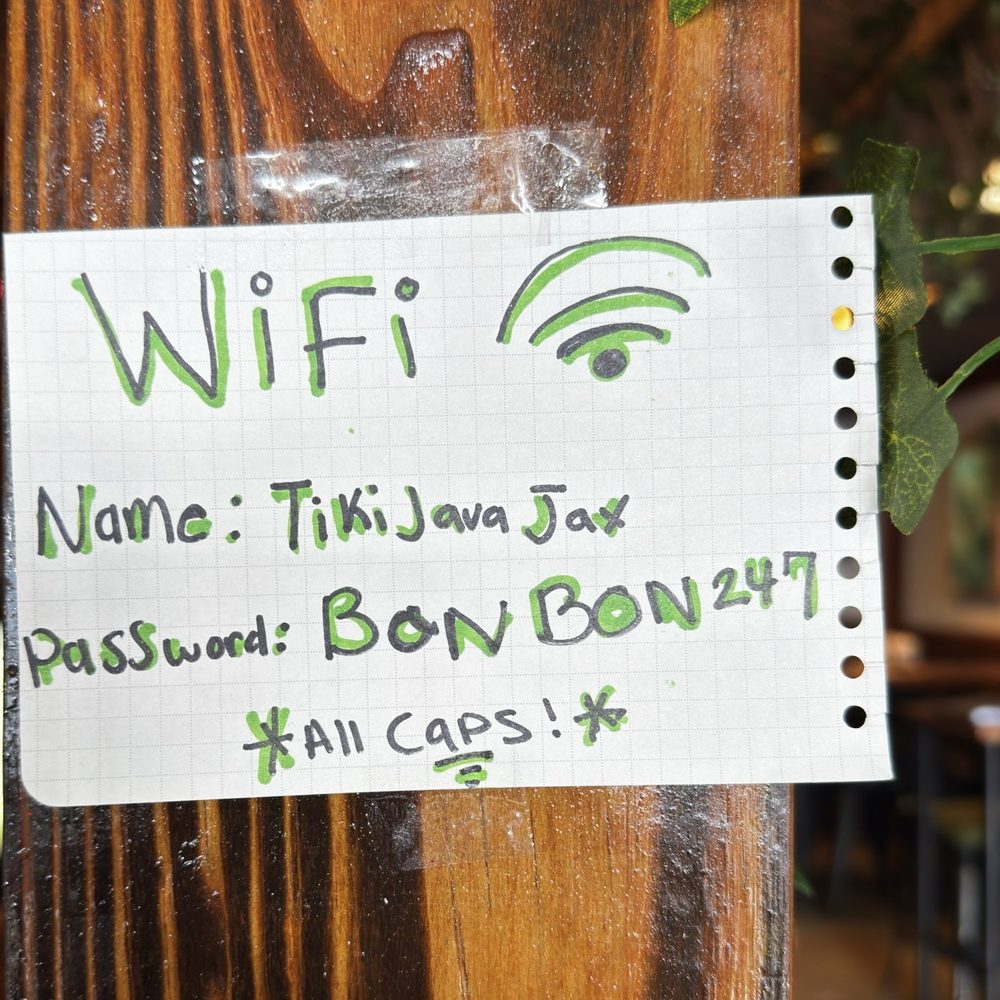 WiFi
Name: Tiki Java Jax
Password: BONBON247
*All Caps!*